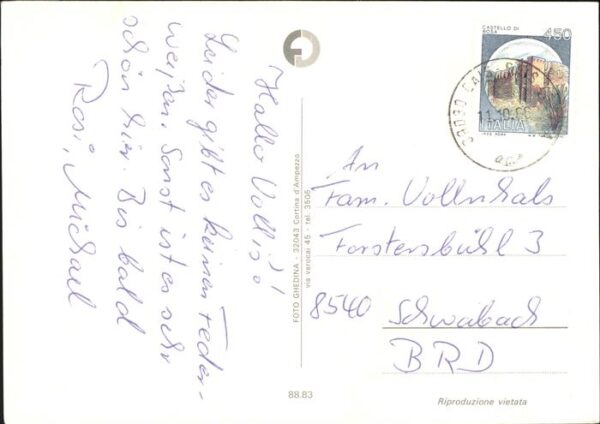 Hallo Vollis!
Leider gibt es keinen Feder-
weißen. Sonst ist es sehr
schön hier. Bis bald
Rosi, Michael
FOTO GHEDINA - 32043 Cortina d'Ampezzo
via verocai 45 - tel. 3505
88.83
CASTELLO DI
ROSA
450
ITALIA
39030
11.10
An
Fam. Vollnhals
Forstersbühl 3
8540 Schwabach
BRD
Riproduzione vietata